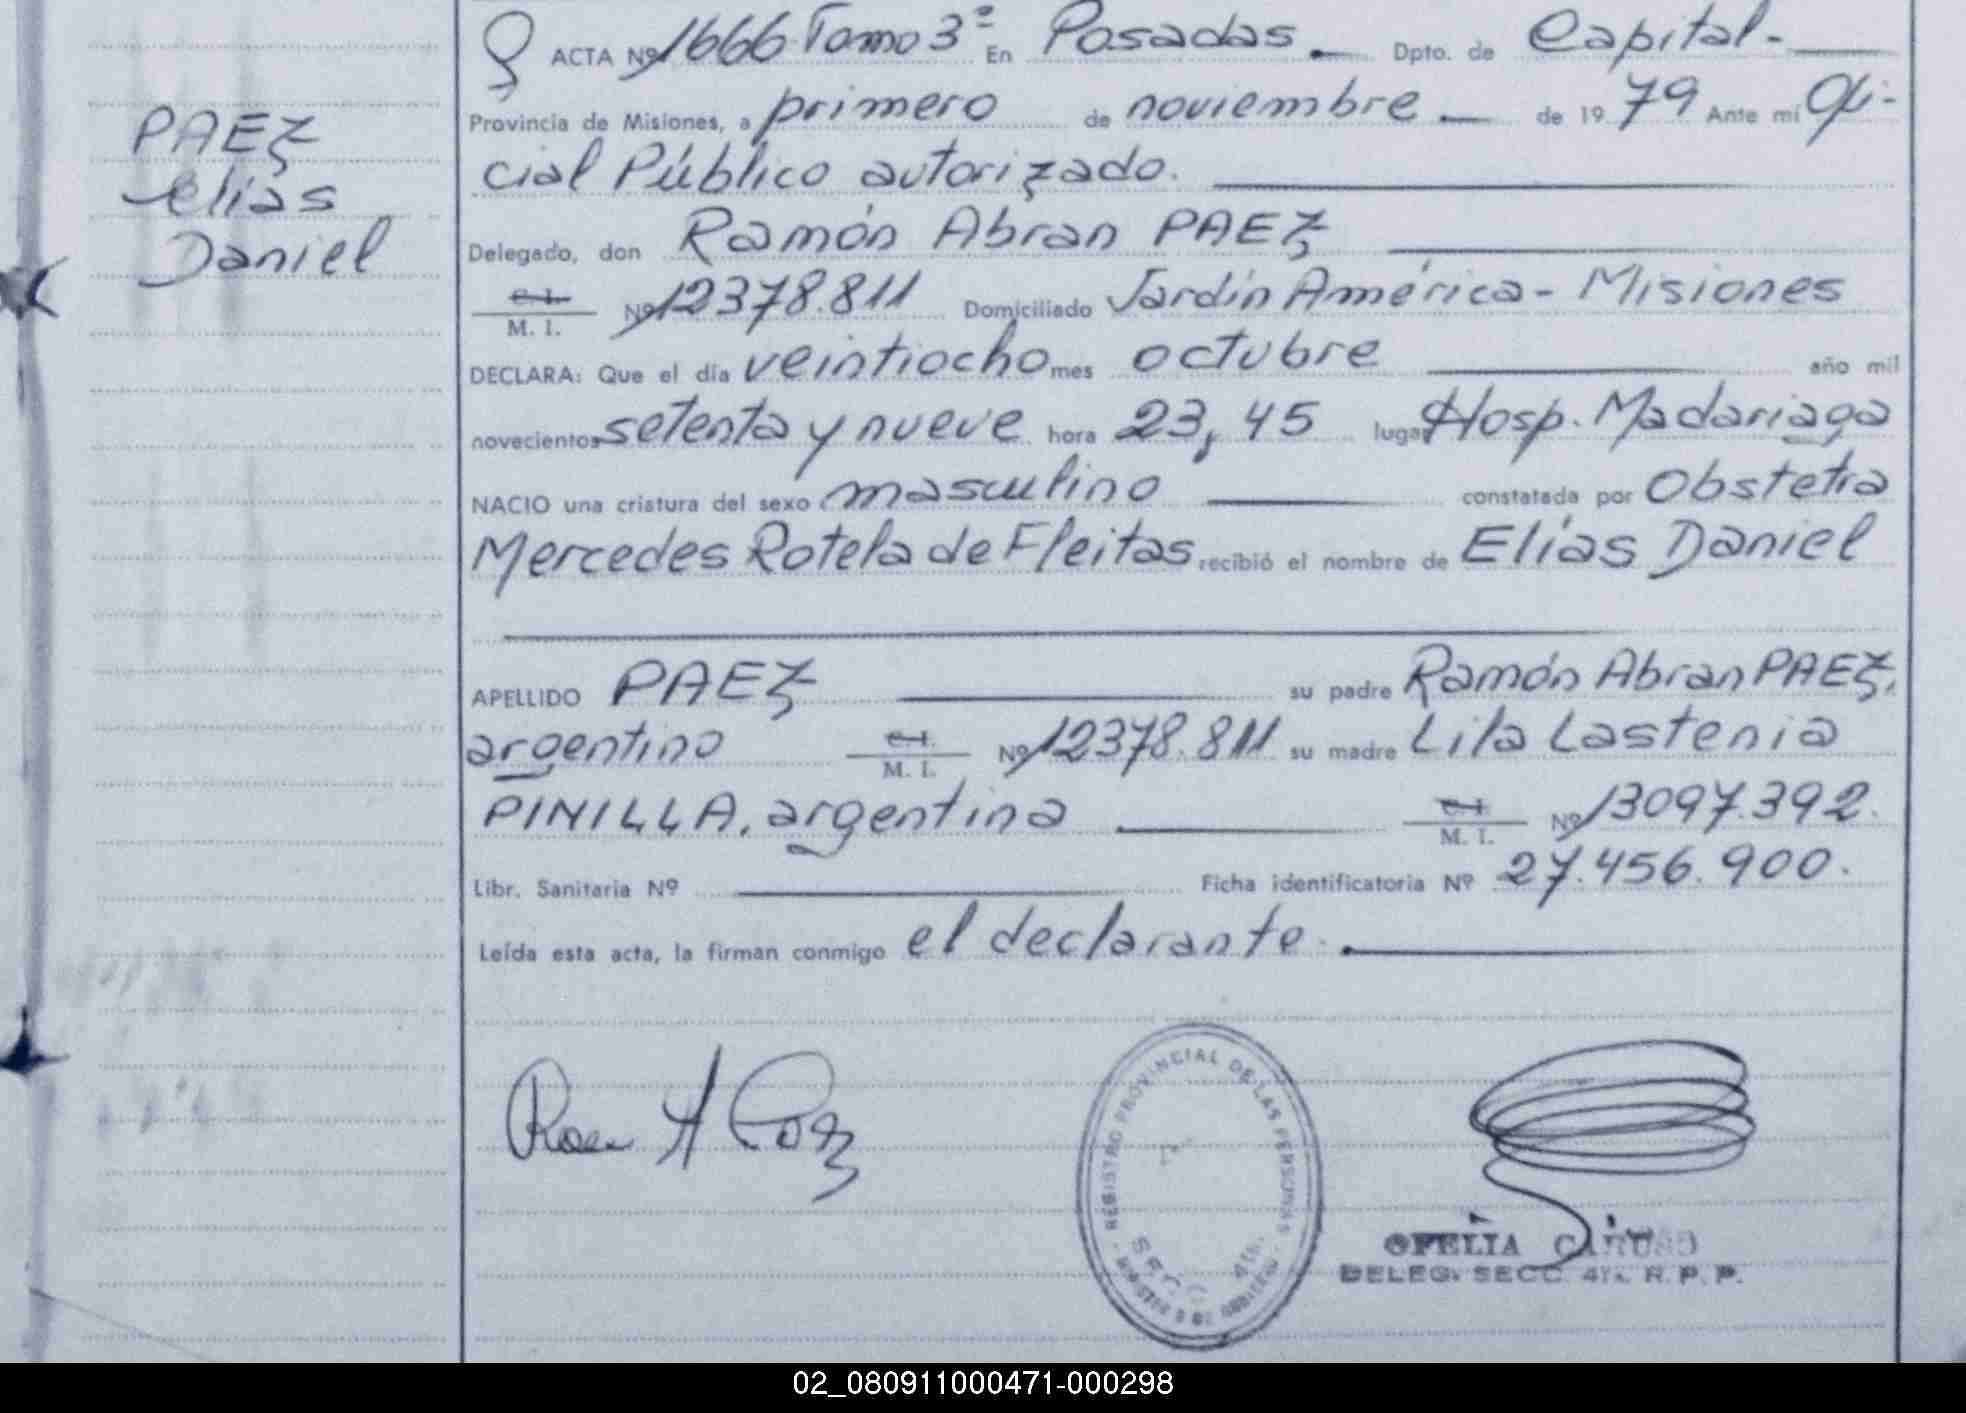 ACTA Nº 1666 Tomo 3º En Posadas. Dpto. de Capital.
Provincia de Misiones, a primero de noviembre de 1979 Ante mí Ofi-
cial Público autorizado.
PAEZ
Elías
Daniel
Delegado, don Ramón Abran PAEZ
C. I.
M. I. Nº 12378.811 Domiciliado Jardín América - Misiones
DECLARA: Que el día veintiocho mes octubre año mil
novecientos setenta y nueve hora 23,45 lugar Hosp. Madariaga
NACIO una criatura del sexo masculino constatada por Obstetra
Mercedes Rotela de Fleitas recibió el nombre de Elías Daniel
APELLIDO PAEZ su padre Ramón Abran PAEZ,
argentino C. I. M. I. Nº 12378.811 su madre Lila Lastenia
PINILLA, argentina C. I. M. I. Nº 13097.392.
Libr. Sanitaria Nº Ficha identificatoria Nº 27.456.900.
Leída esta acta, la firman conmigo el declarante.
REGISTRO PROVINCIAL DE LAS PERSONAS
SECC. 4ta.
OFELIA CARUSO
DELEG. SECC. 4ta. R. P. P.
02_080911000471-000298